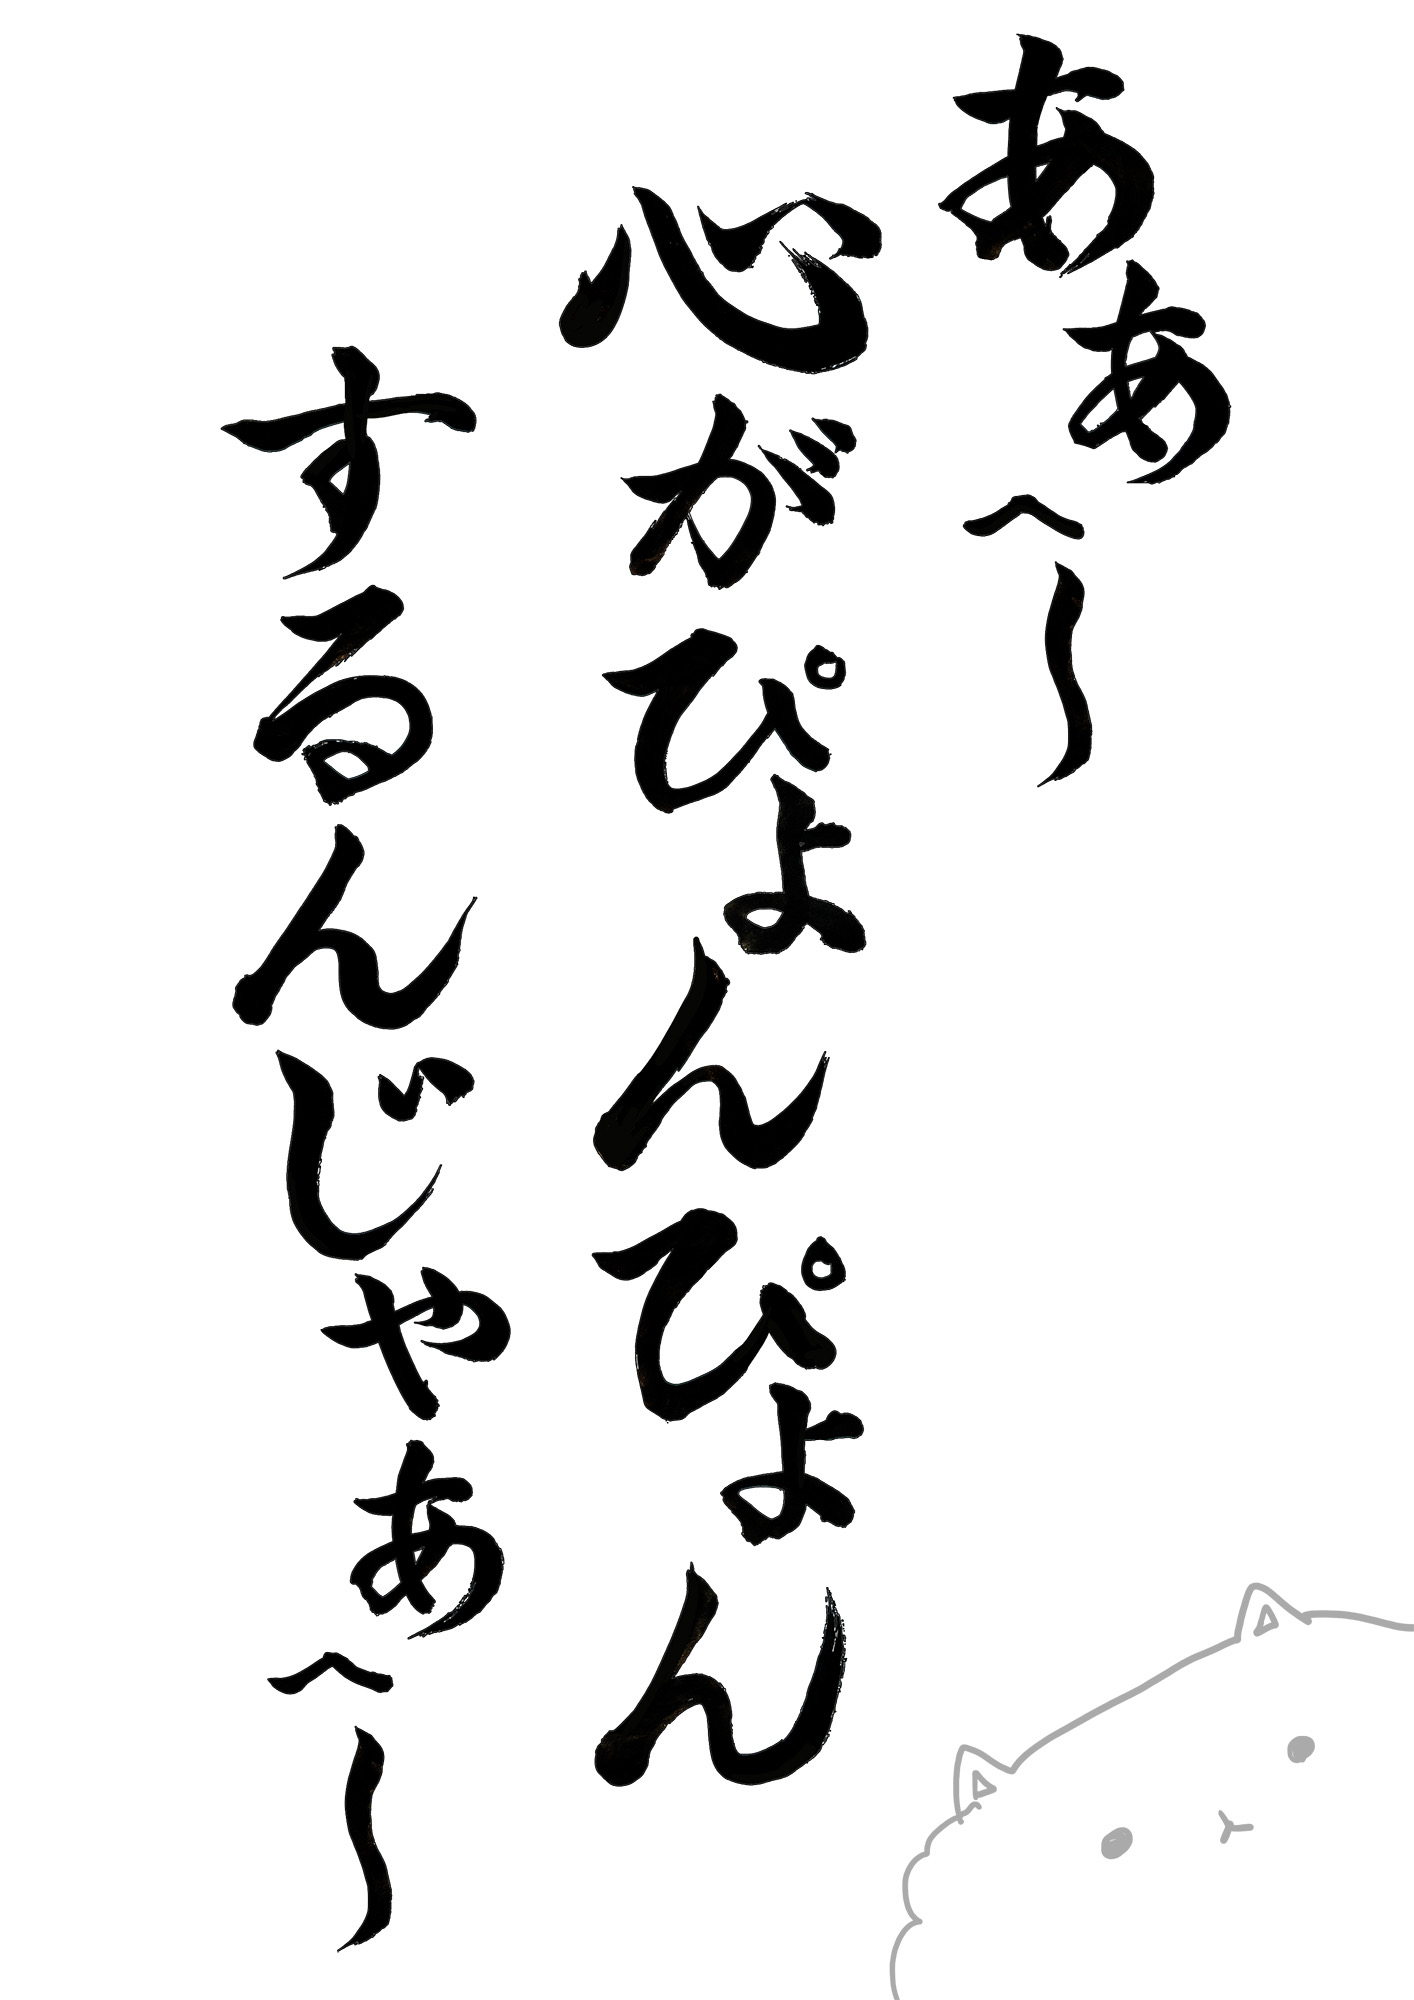 ああ^〜
心がぴょんぴょん
するんじゃあ^〜